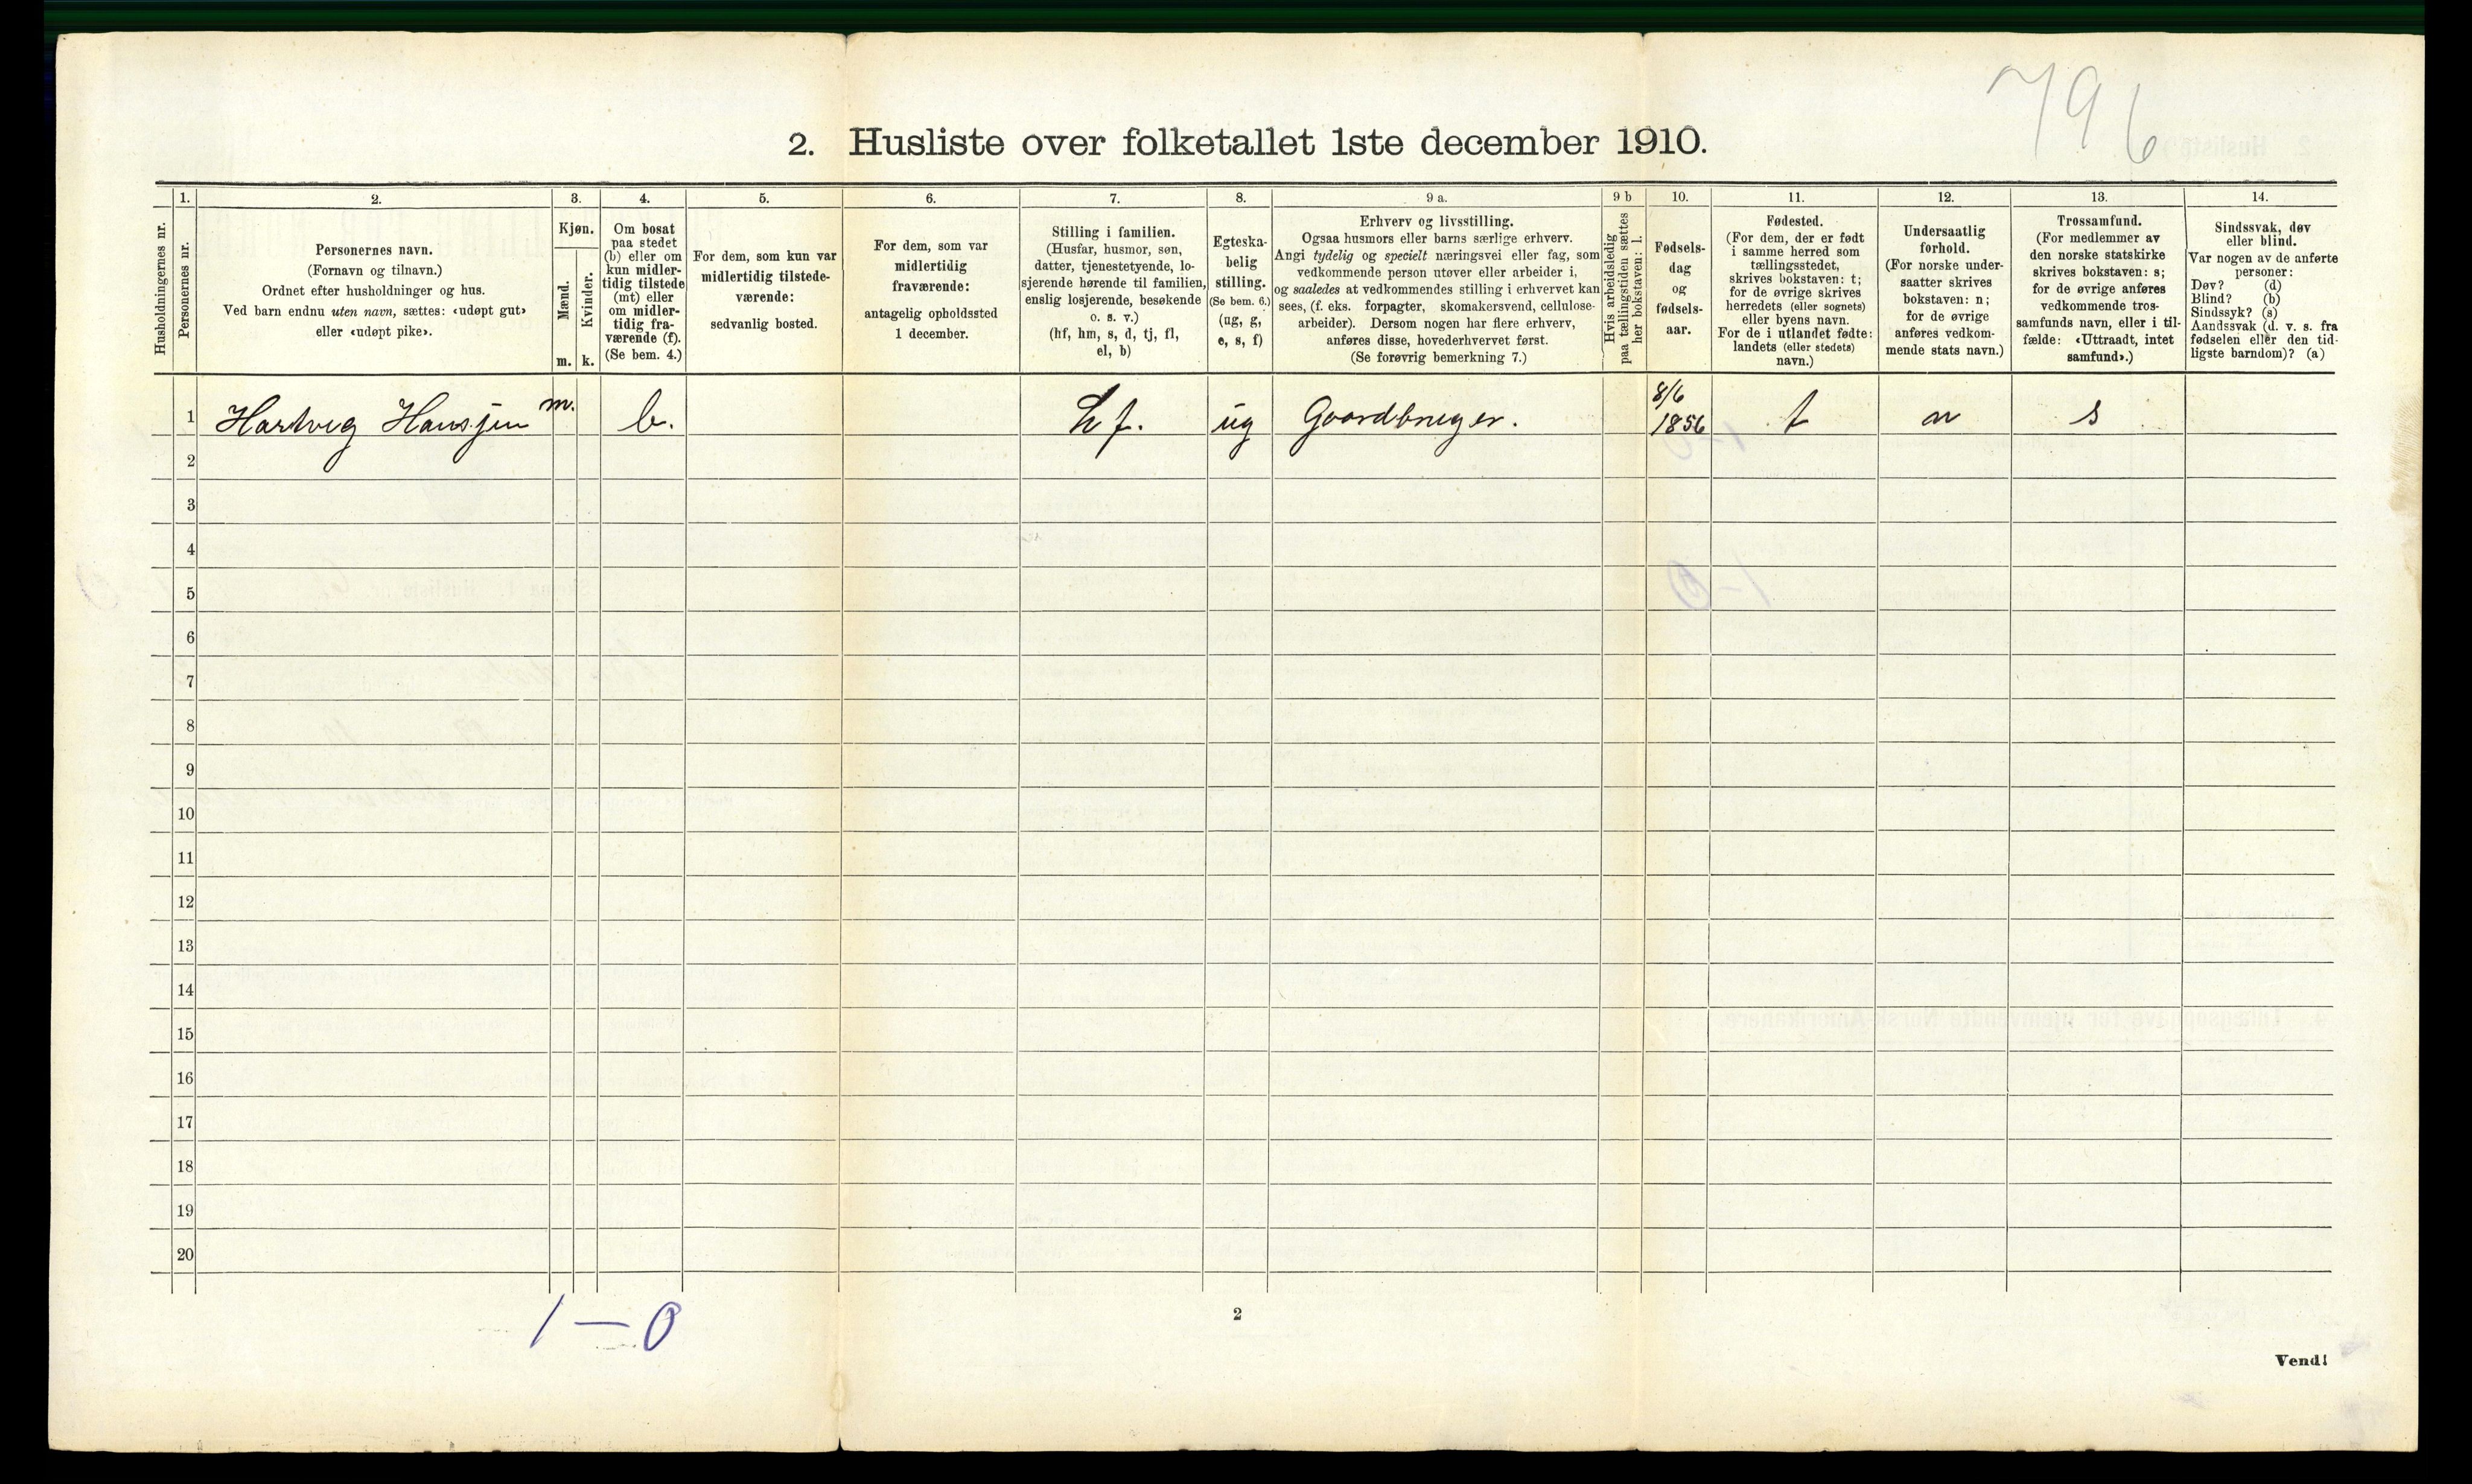 796
2. Husliste over folketallet 1ste december 1910.
Husholdningernes nr.
1.
Personernes nr.
2.
Personernes navn.
(Fornavn og tilnavn.)
Ordnet efter husholdninger og hus.
Ved barn endnu uten navn, sættes: «udøpt gut»
eller «udøpt pike».
3.
Kjøn.
Mænd.
m.
Kvinder.
k.
4.
Om bosat
paa stedet
(b) eller om
kun midler-
tidig tilstede
(mt) eller
om midler-
tidig fra-
værende (f).
(Se bem. 4.)
5.
For dem, som kun var
midlertidig tilstede-
værende:
sedvanlig bosted.
6.
For dem, som var
midlertidig
fraværende:
antagelig opholdssted
1 december.
7.
Stilling i familien.
(Husfar, husmor, søn,
datter, tjenestetyende, lo-
sjerende hørende til familien,
enslig losjerende, besøkende
o. s. v.)
(hf, hm, s, d, tj, fl,
el, b)
8.
Egteska-
belig
stilling.
(Se bem. 6.)
(ug, g,
e, s, f)
9 a.
Erhverv og livsstilling.
Ogsaa husmors eller barns særlige erhverv.
Angi tydelig og specielt næringsvei eller fag, som
vedkommende person utøver eller arbeider i,
og saaledes at vedkommendes stilling i erhvervet kan
sees, (f. eks. forpagter, skomakersvend, cellulose-
arbeider). Dersom nogen har flere erhverv,
anføres disse, hovederhvervet først.
(Se forøvrig bemerkning 7.)
9 b
Hvis arbeidsledig
paa tællingstiden sættes
her bokstaven: l.
10.
Fødsels-
dag
og
fødsels-
aar.
11.
Fødested.
(For dem, der er født
i samme herred som
tællingsstedet,
skrives bokstaven: t;
for de øvrige skrives
herredets (eller sognets)
eller byens navn.
For de i utlandet fødte:
landets (eller stedets)
navn.)
12.
Undersaatlig
forhold.
(For norske under-
saatter skrives
bokstaven: n;
for de øvrige
anføres vedkom-
mende stats navn.)
13.
Trossamfund.
(For medlemmer av
den norske statskirke
skrives bokstaven: s;
for de øvrige anføres
vedkommende tros-
samfunds navn, eller i til-
fælde: «Uttraadt, intet
samfund».)
14.
Sindssvak, døv
eller blind.
Var nogen av de anførte
personer:
Døv? (d)
Blind? (b)
Sindssyk? (s)
Aandssvak (d. v. s. fra
fødselen eller den tid-
ligste barndom)? (a)
1 Hartvig Hansjen m. b. hf. ug Gaardbruger. 8/6 1856 t n s
2
3
4
5
6
7
8
9
10
11
12
13
14
15
16
17
18
19
20
1 — 0
2
Vend!